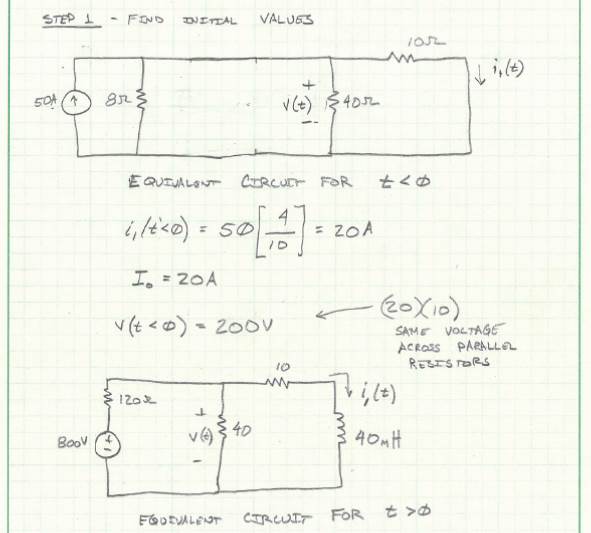 STEP 1 - FIND INITIAL VALUES
10Ω
i₁(t)
50A
8Ω
+
V(t)
-
40Ω
EQUIVALENT CIRCUIT FOR t<0
i₁(t<0) = 50[4/10] = 20A
I₀ = 20A
V(t<0) = 200V
(20)(10)
SAME VOLTAGE
ACROSS PARALLEL
RESISTORS
10
i₁(t)
120Ω
+
V(t)
-
40
800V
+
-
40mH
EQUIVALENT CIRCUIT FOR t>0